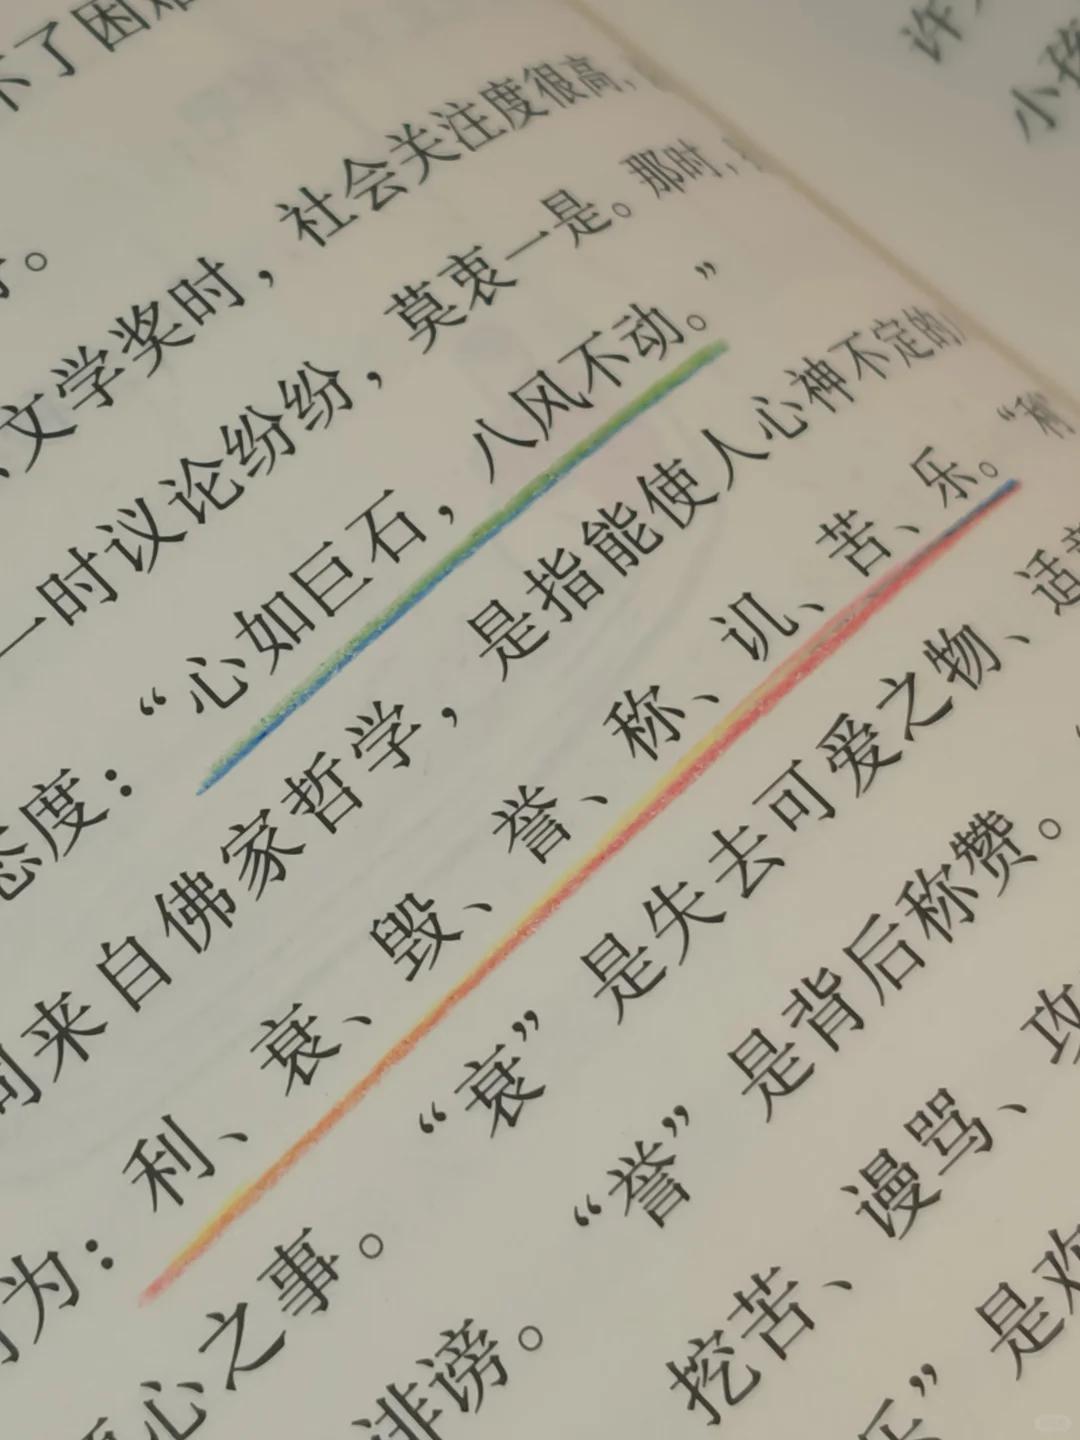 不了困难
。
文学奖时，社会关注度很高，
一时议论纷纷，莫衷一是。那时，
态度：“心如巨石，八风不动。”
来自佛家哲学，是指能使人心神不定的
为：利、衰、毁、誉、称、讥、苦、乐。“利
心之事。“衰”是失去可爱之物、适
诽谤。“誉”是背后称赞。“
挖苦、谩骂、攻
乐”是欢
许
小孩